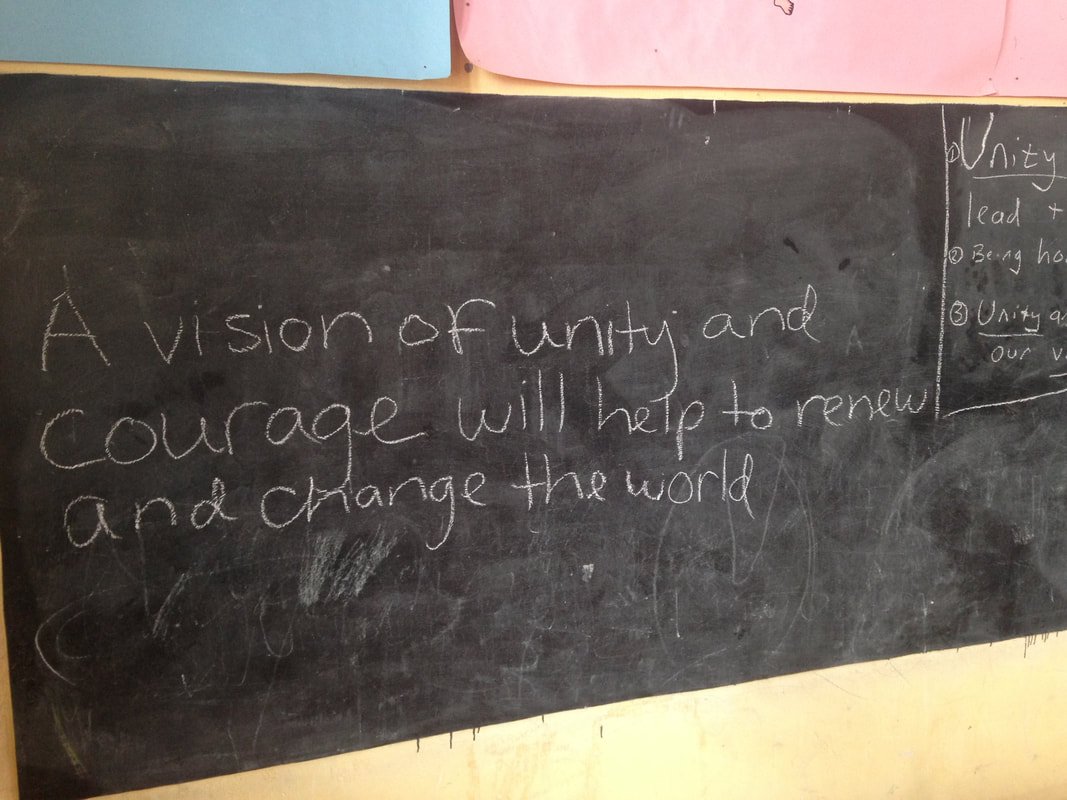 A vision of unity and
courage will help to renew
and change the world
① Unity
lead +
② Being
③ Unity
our